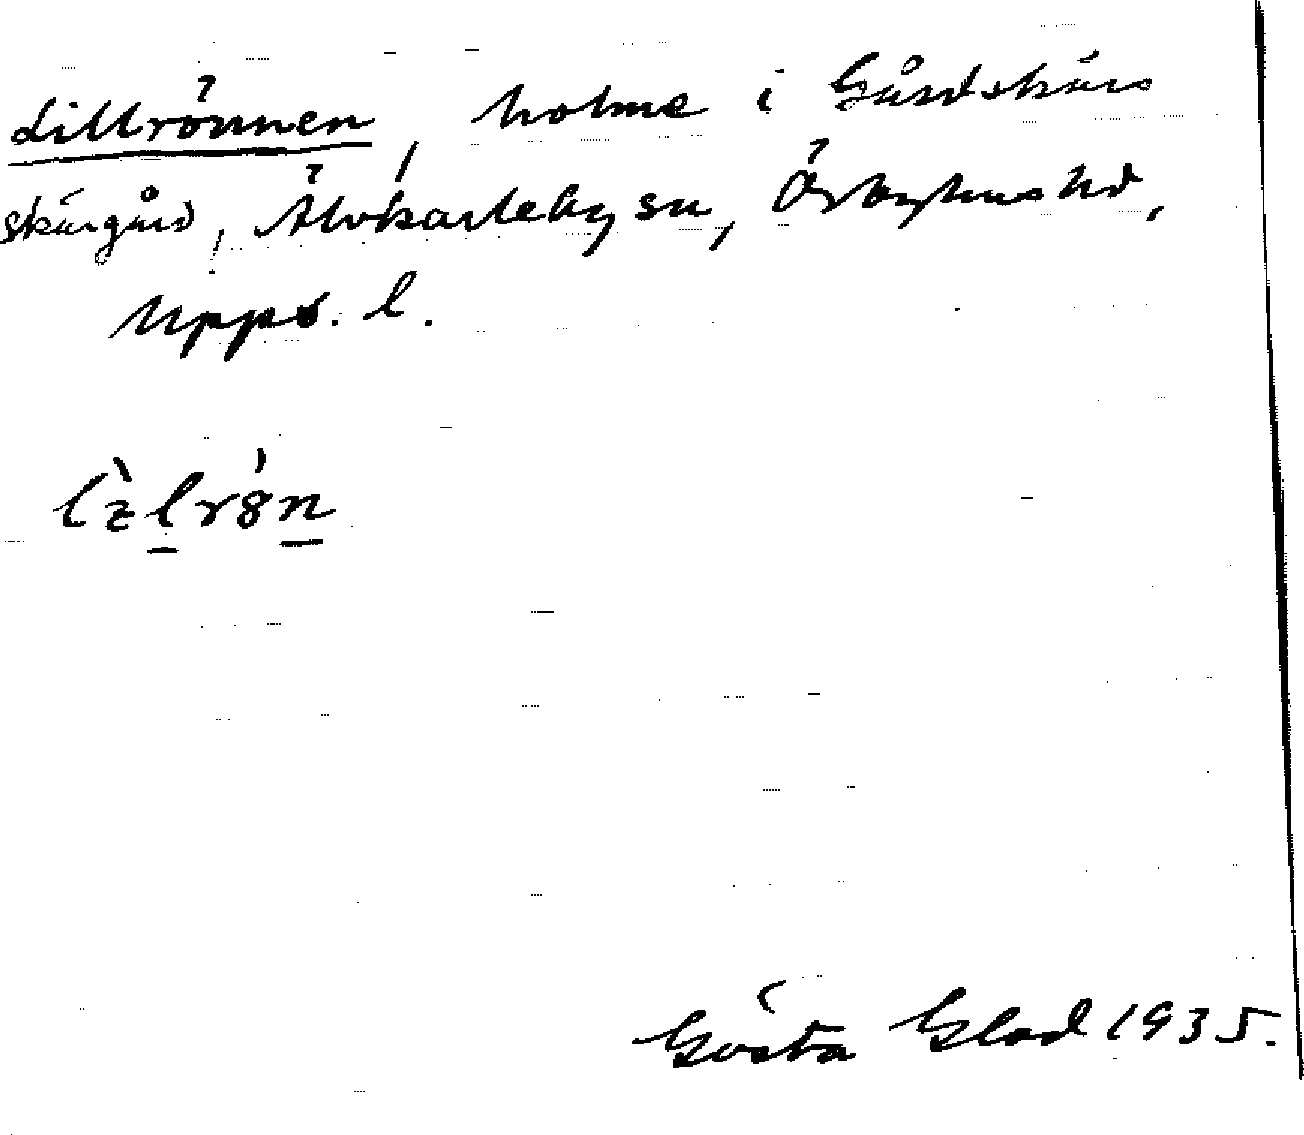 Lillrönnen, holme i Gårdskärs
skärgård, Älvkarleby sn, Örbyhus hd,
Upps. l.
lìlrön
Gösta Glad 1935.